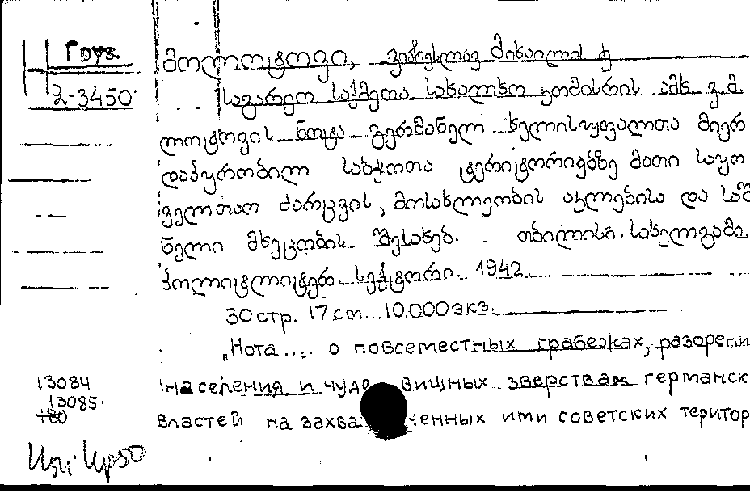 Груз.
2-3450
მოლოტოვი, ვიაჩესლავ მიხაილის ძე
საგარეო საქმეთა სახალხო კომისრის ამხ. ვ. მ.
ლოტოვის ნოტა გერმანელ ხელისუფალთა მიერ
დაპყრობილ საბჭოთა ტერიტორიებზე მათი საყო
ველთაო ძარცვის, მოსახლეობის აკლებისა და საზ
ნელი მხეცობის შესახებ. თბილისი. სახელგამი.
პოლიტლიტერ. სექტორი. 1942.
30 стр. 17 см. 10.000 экз.
„Нота ... о повсеместных грабежах, разорении
населения и чудовищных зверствах германск
властей на захваченных ими советских територ
13084
13085